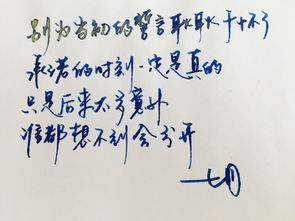 别为当初的誓言耿耿于怀了
承诺的时刻一定是真的
只是后来太多意外
谁都想不到会分开